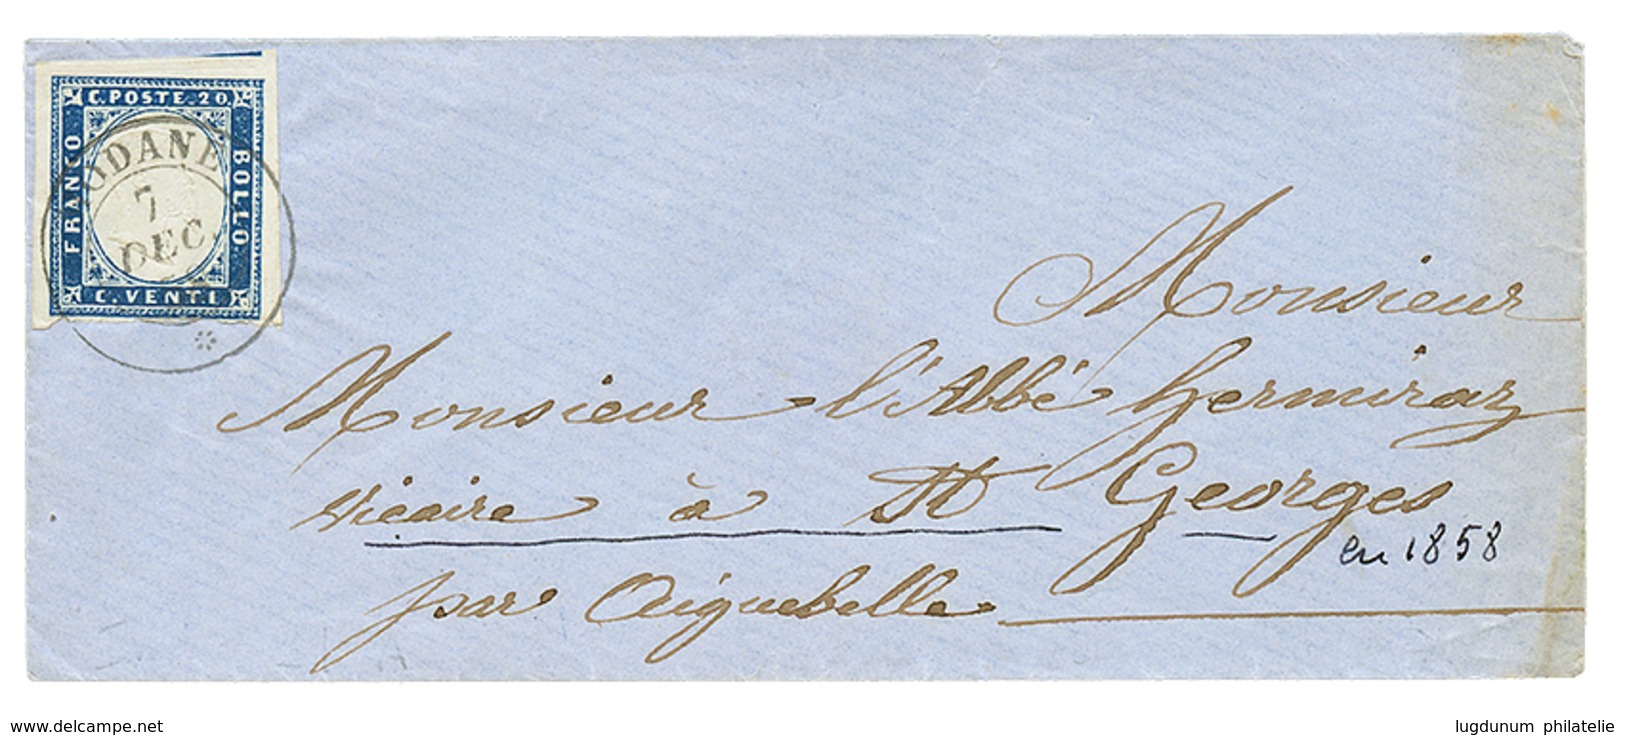 C. POSTE. 20
FRANCO
BOLLO.
C. VENTI
ODANE
7
DEC.
Monsieur
Monsieur l'Abbé hermiraz
vicaire à St Georges
en 1858
par Aiguebelle
www.delcampe.net
lugdunum philatelie